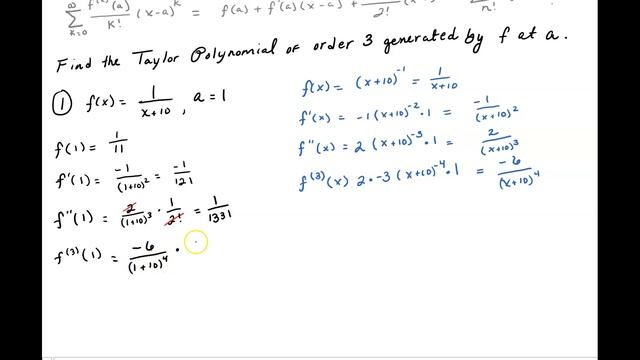 ∞ Σ k=0 f^(k)(a)/k! (x-a)^k = f(a) + f'(a)(x-a) + /2! (x- n!
Find the Taylor Polynomial of order 3 generated by f at a.
① f(x) = 1/(x+10) , a = 1
f(1) = 1/11
f'(1) = -1/(1+10)^2 = -1/121
f''(1) = 2/(1+10)^3 · 1/2! = 1/1331
f^(3)(1) = -6/(1+10)^4 ·
f(x) = (x+10)^-1 = 1/(x+10)
f'(x) = -1(x+10)^-2 · 1 = -1/(x+10)^2
f''(x) = 2(x+10)^-3 · 1 = 2/(x+10)^3
f^(3)(x) 2·-3(x+10)^-4 · 1 = -6/(x+10)^4